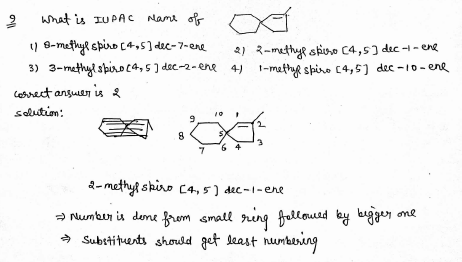 9 What is IUPAC Name of
1) 8-methyl spiro [4,5] dec-7-ene 2) 2-methyl spiro [4,5] dec-1-ene
3) 3-methyl spiro [4,5] dec-2-ene 4) 1-methyl spiro [4,5] dec-10-ene
correct answer is 2
solution:
9 10 1
8 5 2
7 6 4 3
2-methyl spiro [4,5] dec-1-ene
⇒ Number is done from small ring followed by bigger one
⇒ Substituents should get least numbering